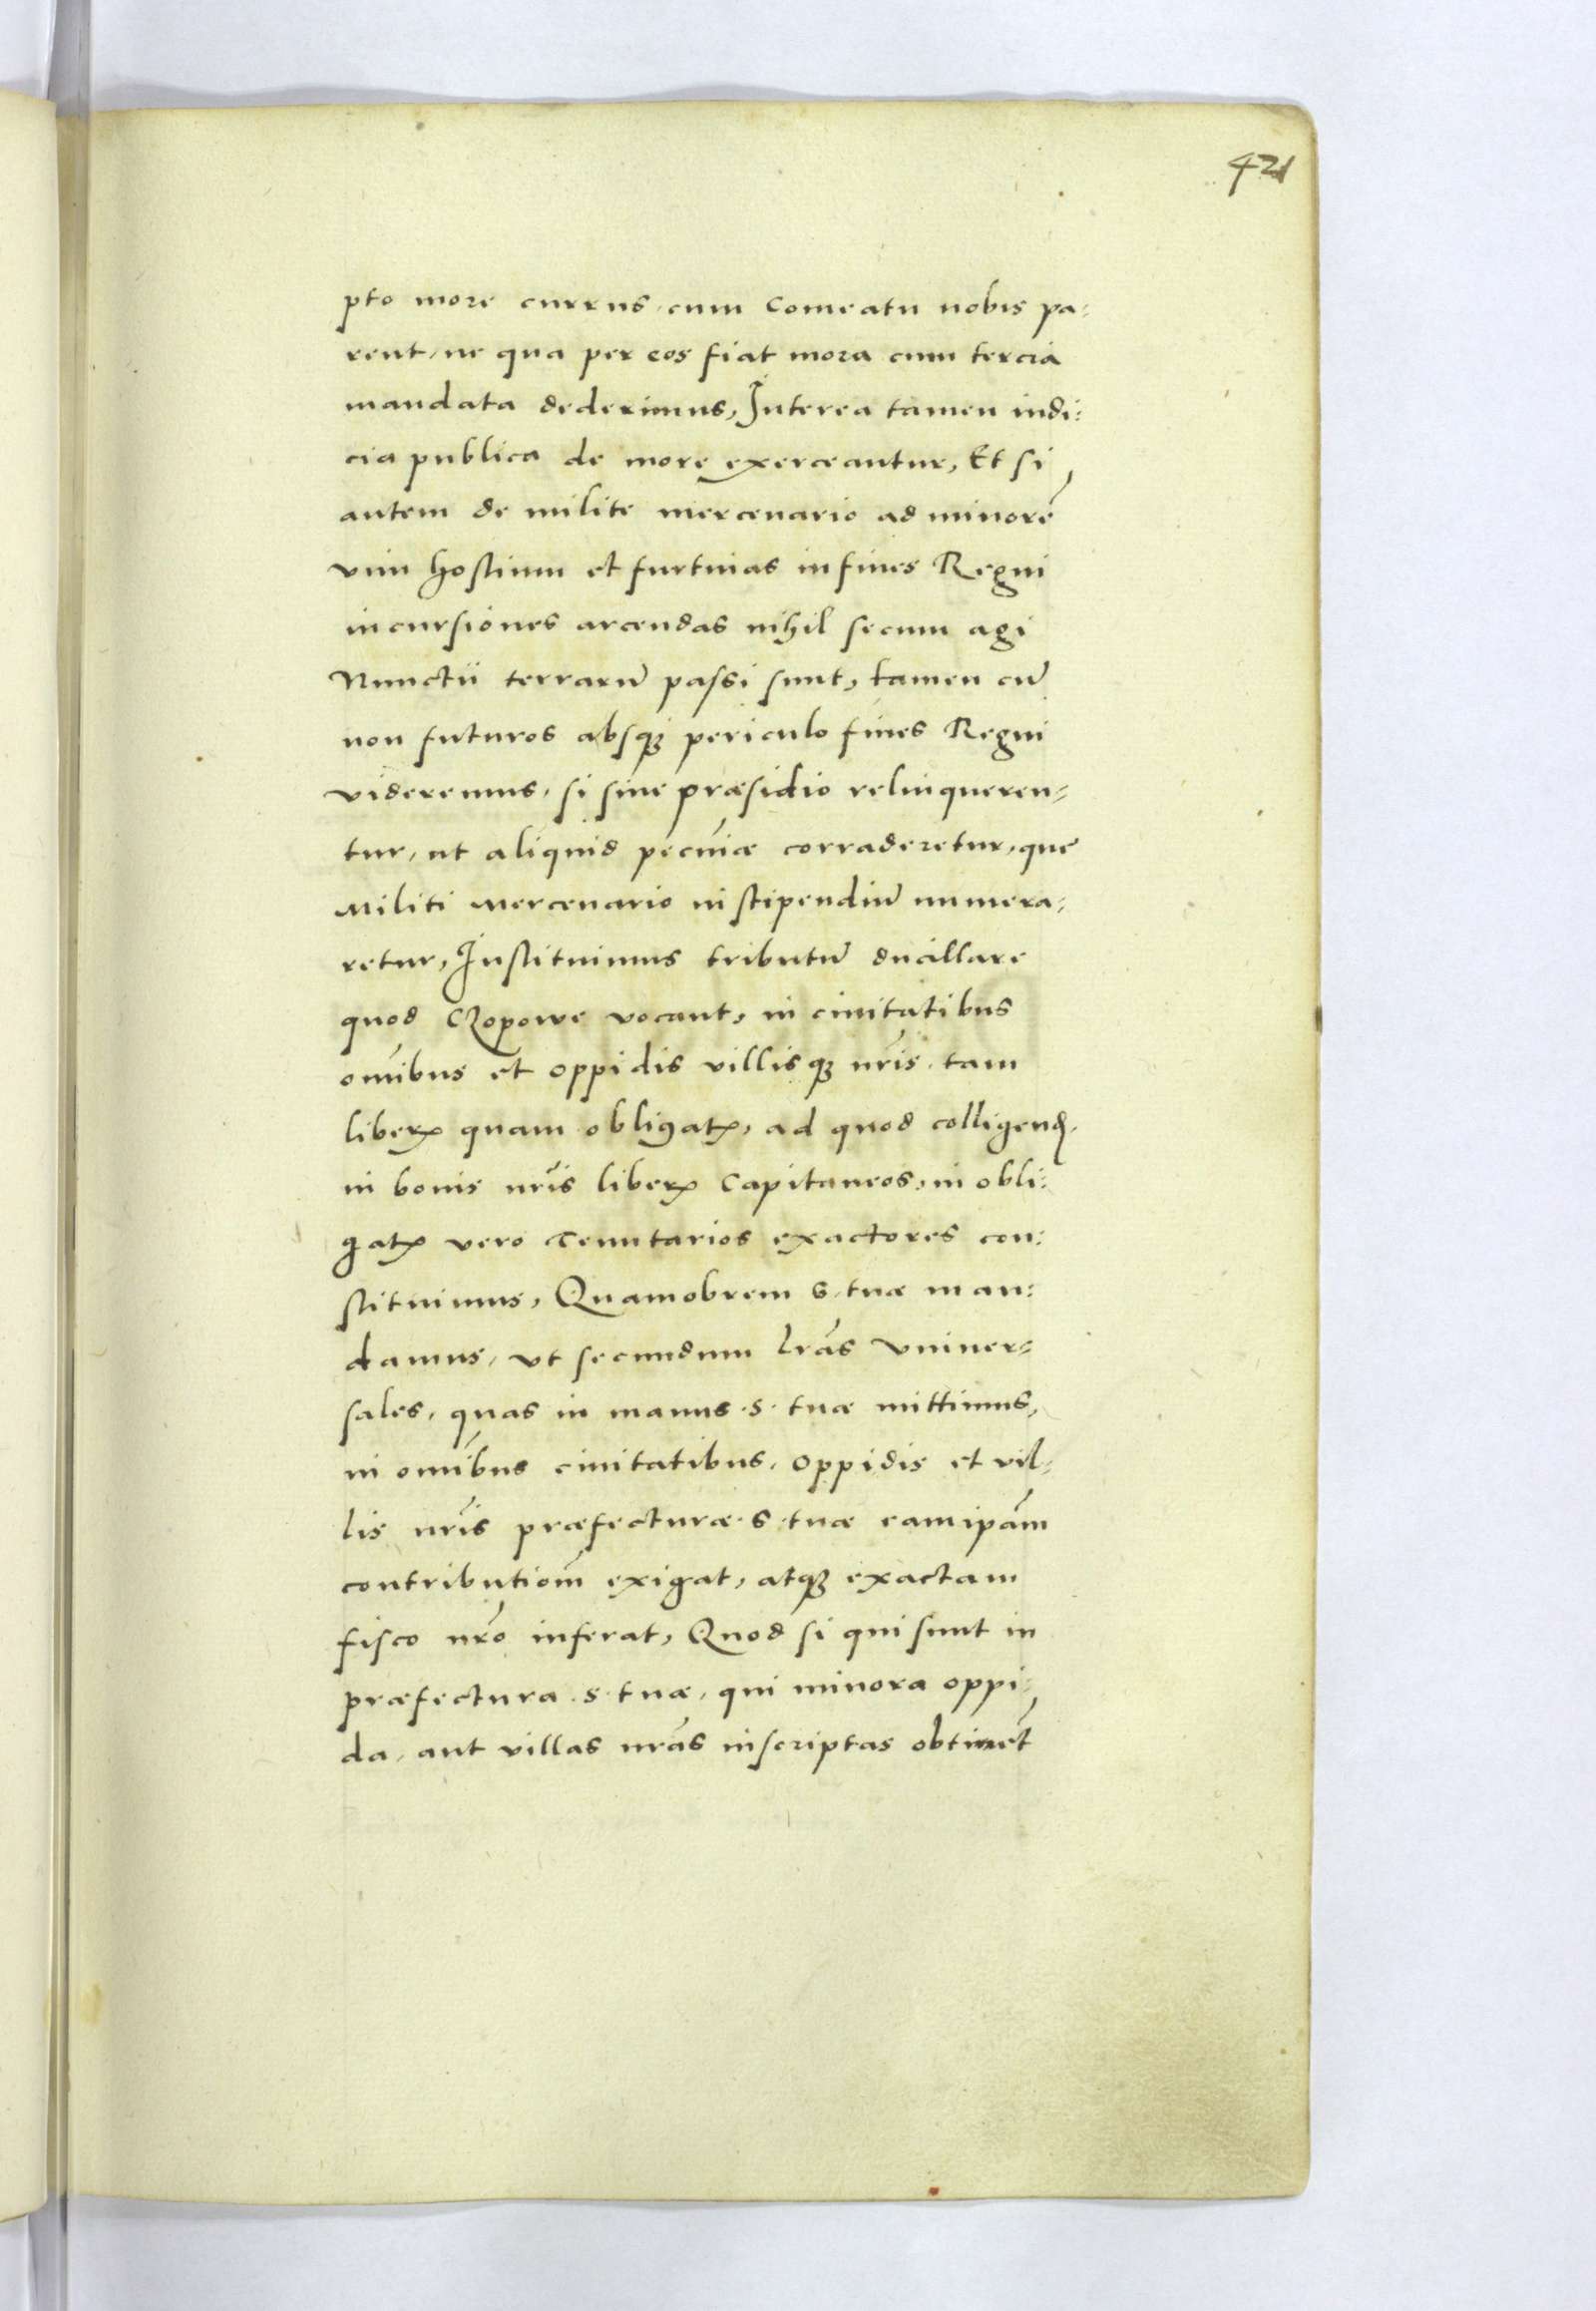 421
pto more currus, cum Comeatu nobis pa:
rent, ne qua per eos fiat mora cum tercia
mandata dederimus, Interea tamen iudi:
cia publica de more exerceantur, Et si
autem de milite mercenario ad minorē
vim hostium et furtiuas in fines Regni
incursiones arcendas nihil secum agi
Nunctii terrarū passi sunt, tamen cū
non futuros absq periculo fines Regni
videremus, si sine præsidio relinqueren=
tur, ut aliquid pecūiæ corraderetur, que
Militi Mercenario in stipendiū numera:
retur, Instituimus tributū ducillare
quod Czopowe vocant, in ciuitatibus
om̄ibus et oppidis villisq nr̄is, tam
liberꝝ quam obligatꝝ, ad quod colligend.
in bonis nr̄is liberꝝ Capitaneos, in obli:
gatꝝ vero Tenutarios exactores con:
stituimus, Quamobrem S. tuæ man:
damus, vt secundum lr̄as Vniuer=
sales, quas in manus .S. tuæ mittimus,
in om̄ibus ciuitatibus, oppidis et vil=
lis nr̄is præfecturæ .S. tuæ eam ip̄am
contributiom̄ exigat, atq exactam
fisco nr̄o inferat, Quod si qui sunt in
præfectura .S. tuæ, qui minora oppi:
da, aut villas nr̄as inscriptas obtinēt